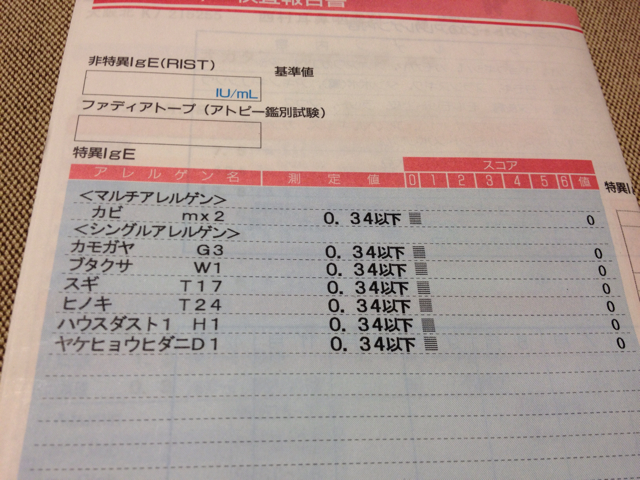 検査報告書
非特異IgE(RIST)
基準値
IU/mL
ファディアトープ（アトピー鑑別試験）
特異IgE
スコア
アレルゲン名 測定値 0 1 2 3 4 5 6 値
特異I
＜マルチアレルゲン＞
カビ mx2 0.34以下 0
＜シングルアレルゲン＞
カモガヤ G3 0.34以下 0
ブタクサ W1 0.34以下 0
スギ T17 0.34以下 0
ヒノキ T24 0.34以下 0
ハウスダスト1 H1 0.34以下 0
ヤケヒョウヒダニD1 0.34以下 0